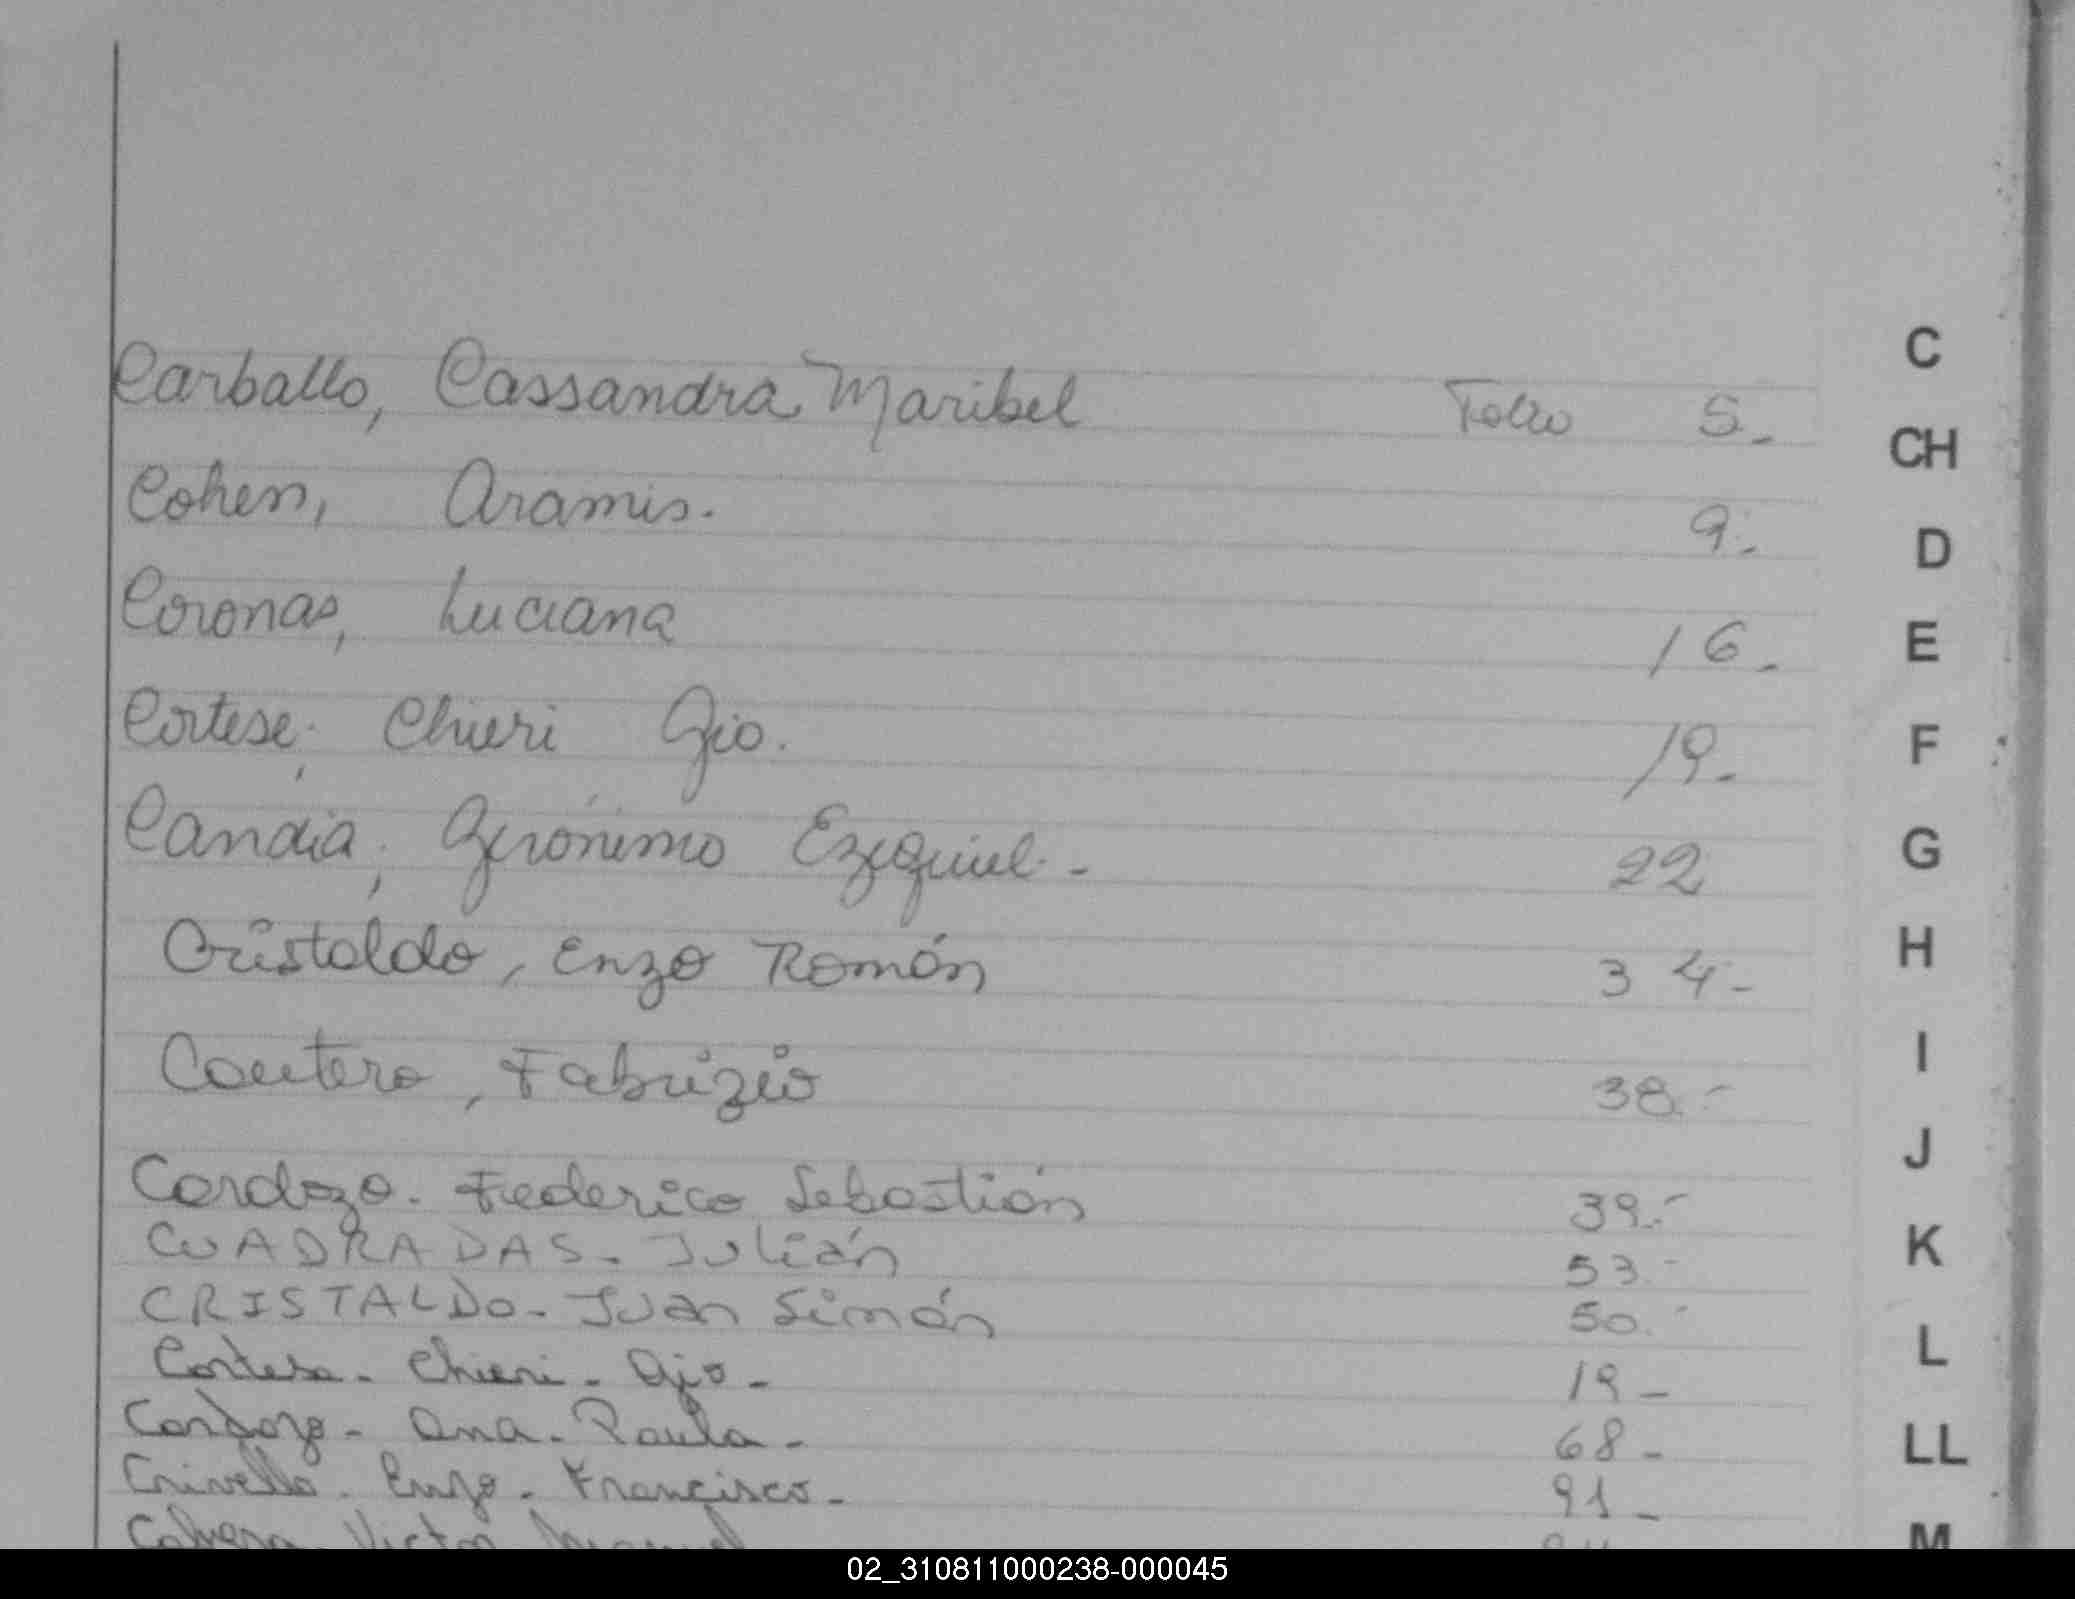 Carballo, Cassandra Maribel Folio 5.-
Cohen, Aramis. 9.-
Coronas, Luciana 16.-
Cortese, Chieri Gio. 19.-
Candia, Gerónimo Ezequiel.- 22
Cristaldo, Enzo Román 34-
Coutero, Fabrizio 38.-
Cardozo. Federico Sebastián 39.-
CUADRADAS. Julián 53.-
CRISTALDO- Juan Simón 50.-
Cortese- Chieri- Gio- 19-
Cardozo- Ana- Paula- 68-
Crivello. Enzo. Francisco- 91-
Cabrera Victor
C
CH
D
E
F
G
H
I
J
K
L
LL
M
02_310811000238-000045